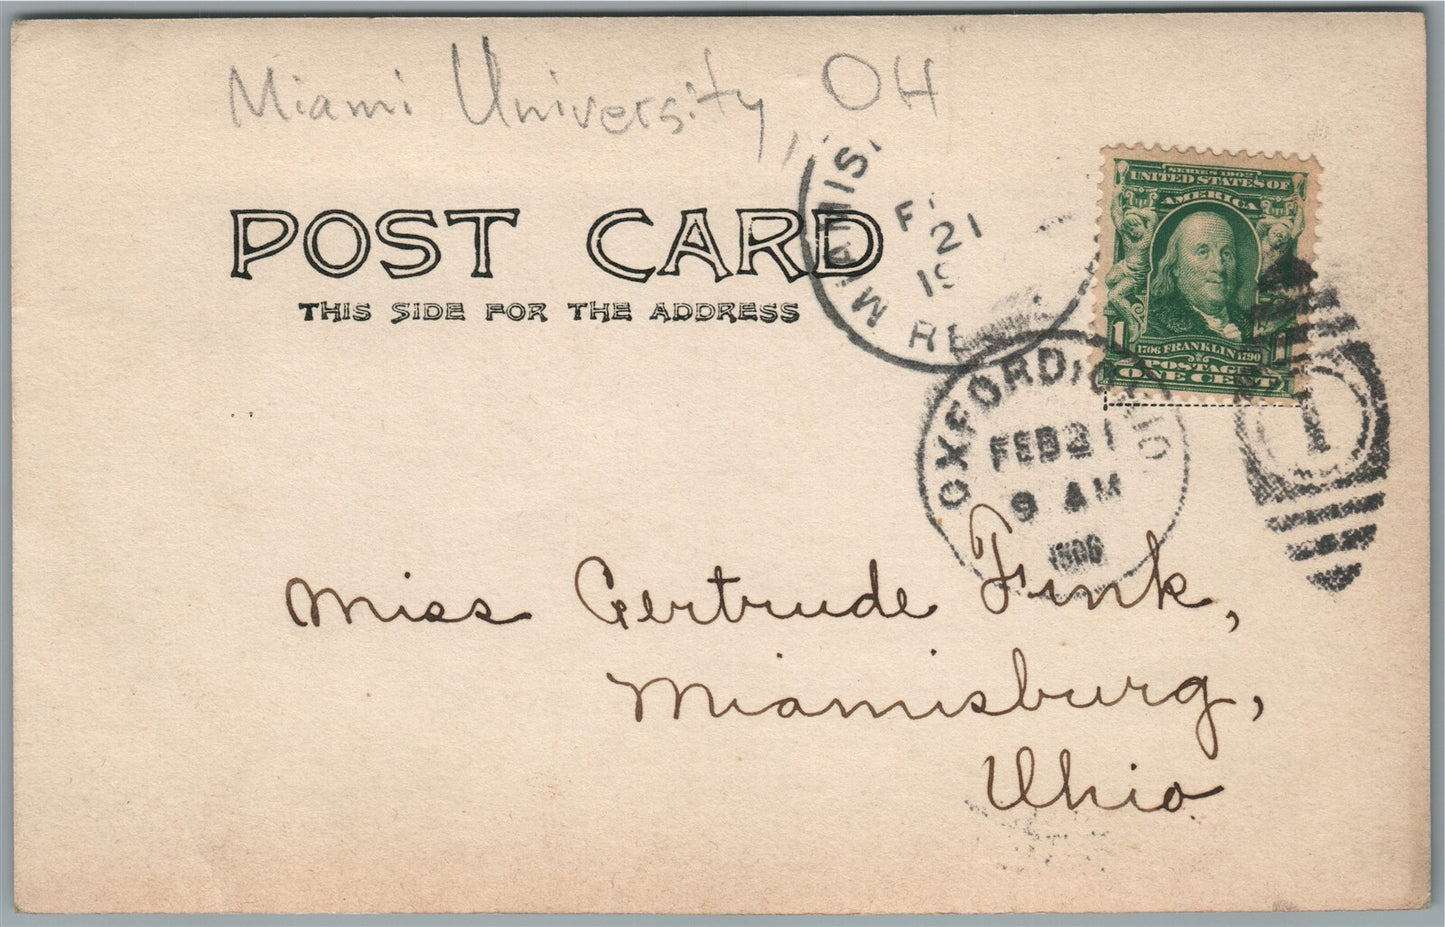 Miami University, OH
POST CARD
THIS SIDE FOR THE ADDRESS
MIAMIS
21
19
SERIES 1902
UNITED STATES OF
AMERICA
1
1706 FRANKLIN 1790
POSTAGE
ONE CENT
OXFORD, OHIO
FEB 21
9 AM
1906
1
Miss Gertrude Fink,
Miamisburg,
Ohio